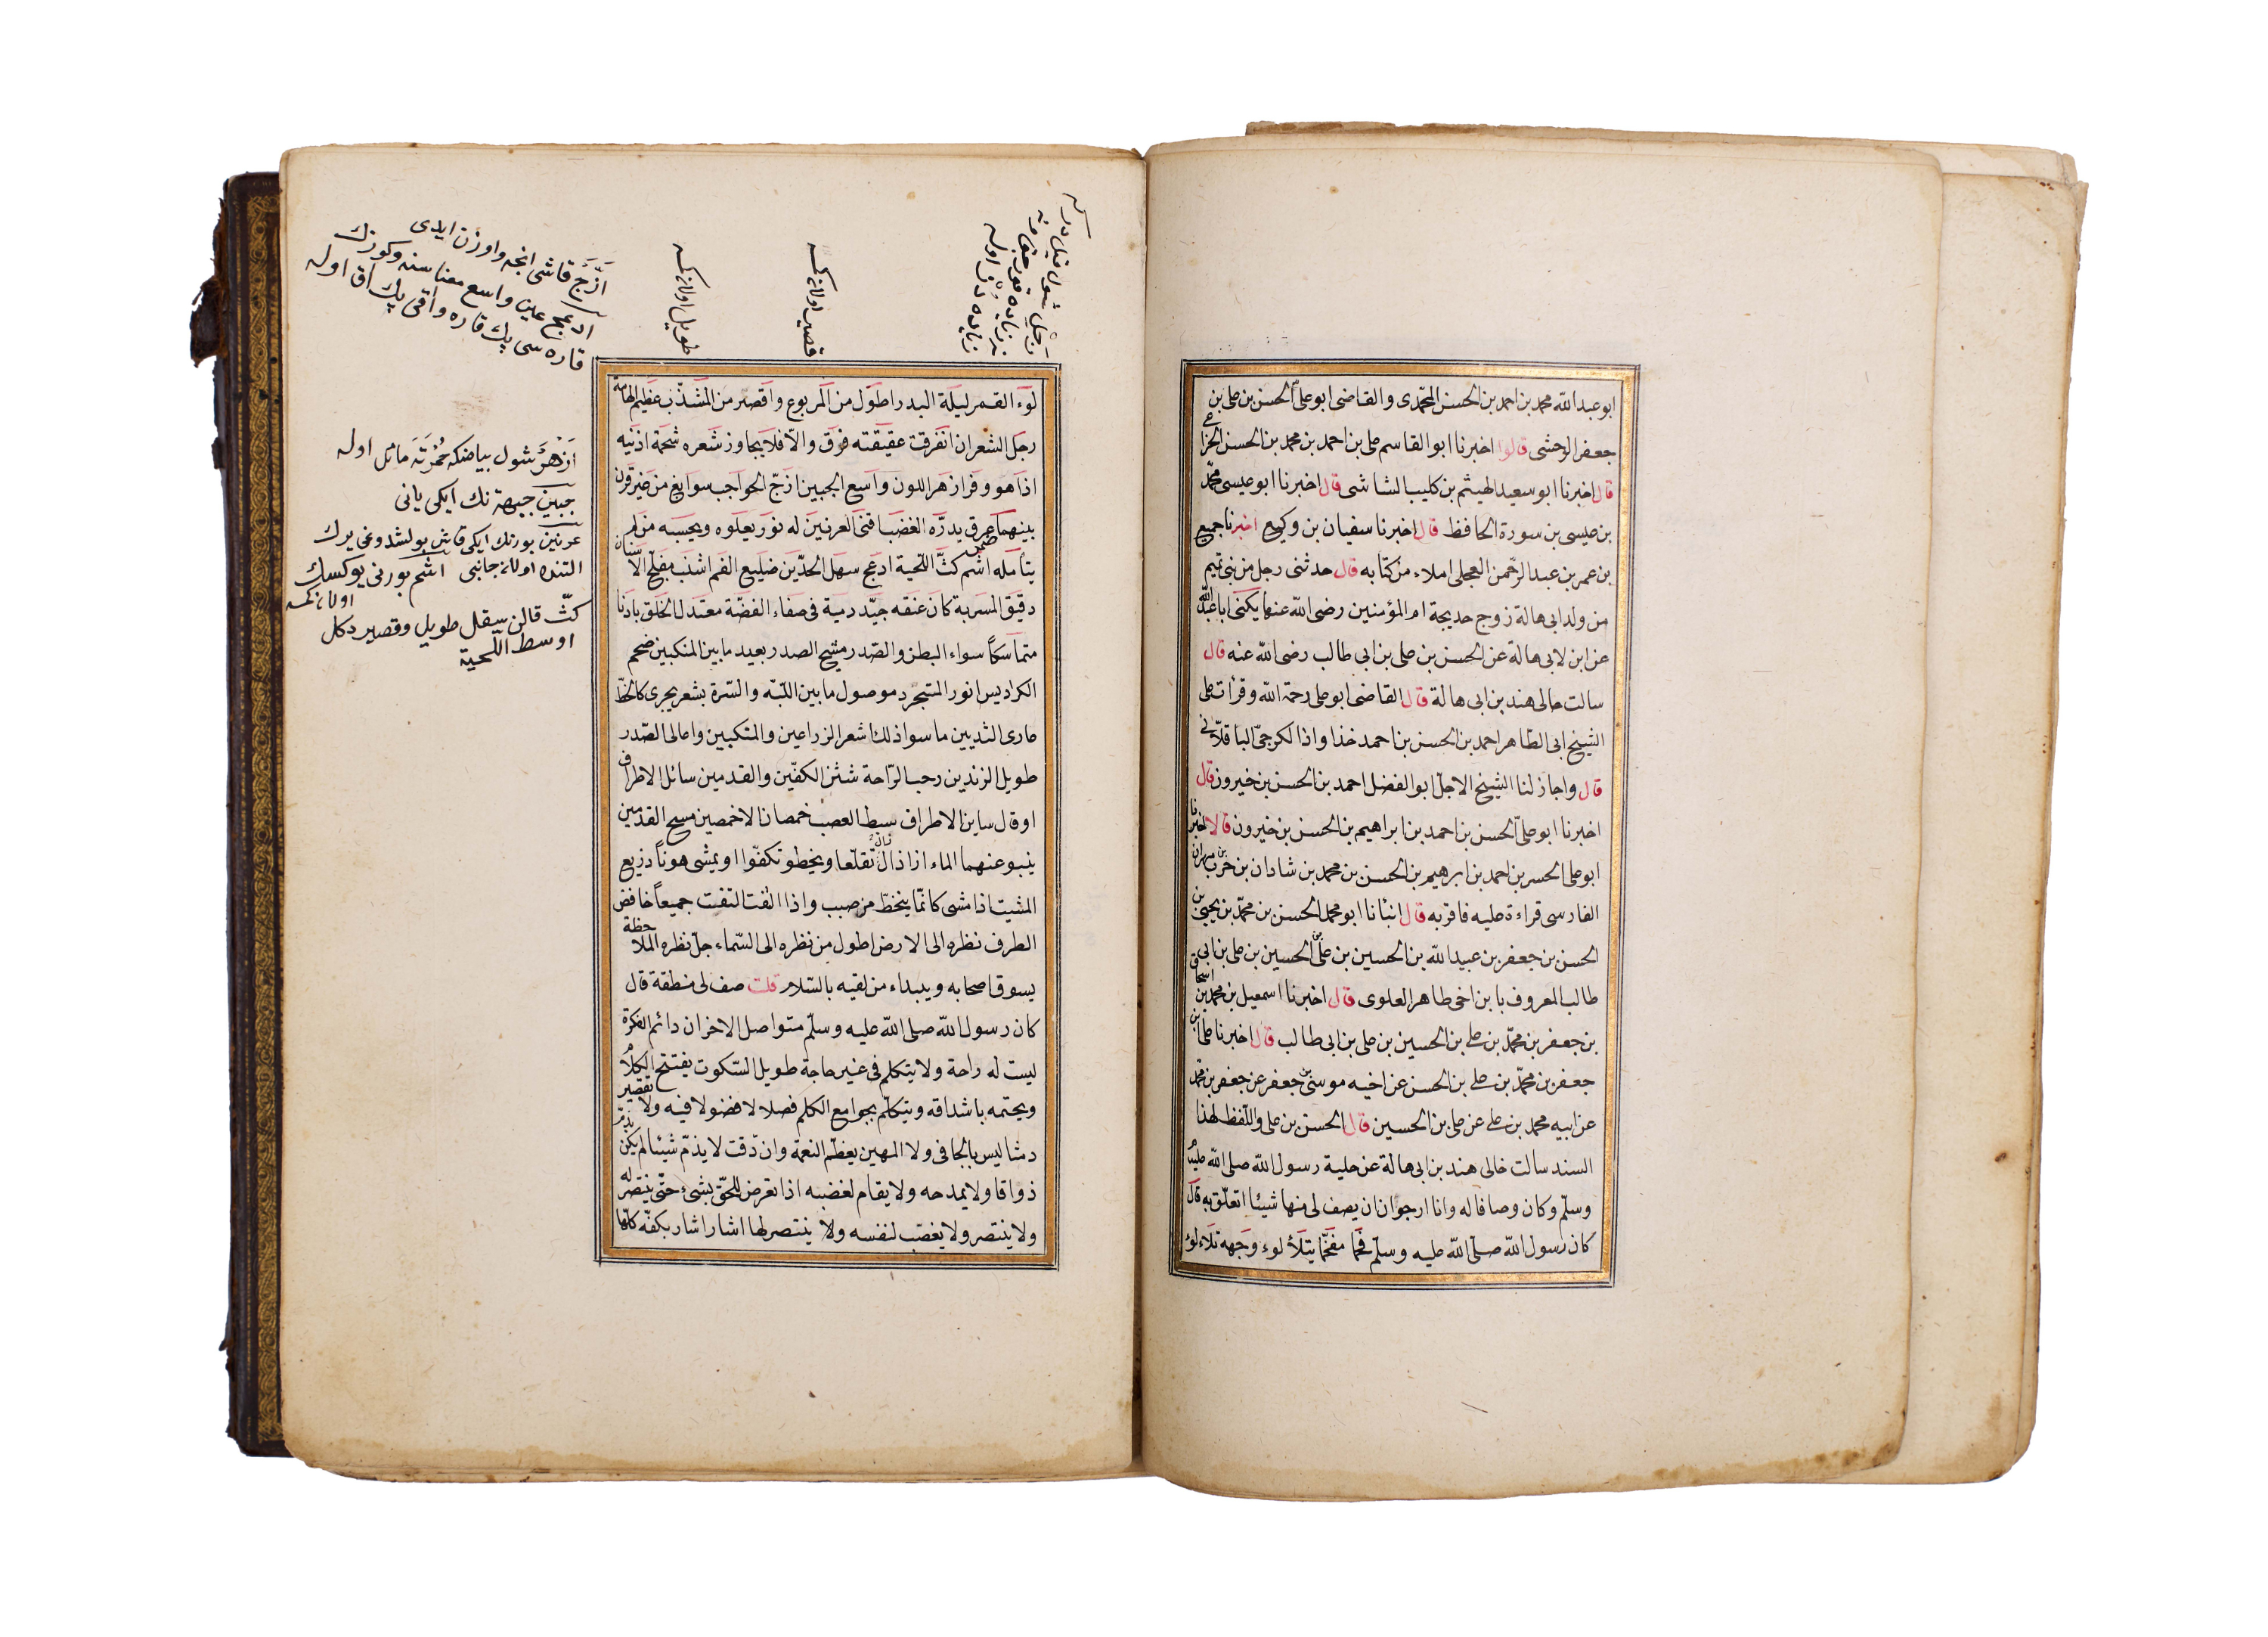 ابو عبد الله محمد بن احمد بن الحسن المحمدى والقاضى ابو علىّ الحسن بن على بن
جعفر الوحشى قالوا اخبرنا ابو القاسم على بن احمد بن محمد بن الحسن الخزاعى
قال اخبرنا ابو سعيد الهيثم بن كليب الشاشى قال اخبرنا ابو عيسى محمّد
بن عيسى بن سورة الحافظ قال اخبرنا سفيان بن وكيع اخبرنا جميع
بن عمر بن عبد الرحمن العجلى املاء من كتابه قال حدثنى رجل من بنى تميم
من ولد ابى هالة زوج خديجة ام المؤمنين رضى الله عنها يكنى ابا عبد الله
عن ابن لابى هالة عن الحسن بن على بن ابى طالب رضى الله عنه قال
سالت خالى هند بن ابى هالة قال القاضى ابو على رحمة الله وقرات على
الشيخ ابى الطاهر احمد بن الحسن بن احمد خذا واذا الكرجىّ الباقلّانى
قال واجاز لنا الشيخ الاجل ابو الفضل احمد بن الحسن بن خيرون قال
اخبرنا ابو علىّ الحسن بن احمد بن ابراهيم بن الحسن بن خيرون قالا اخبرنا
ابو على الحسن بن احمد بن ابرهيم بن الحسن بن محمد بن شادان بن حرب بن مهران
الفارسى قراءة عليه فاقر به قال انبانا ابو محمد الحسن بن محمّد بن يحيى بن
الحسن بن جعفر بن عبيد الله بن الحسين بن علىّ بن الحسين بن على بن ابى
طالب المعروف بابن اخى طاهر العلوى قال اخبرنا اسمعيل بن محمد بن اسحاق
بن جعفر بن محمّد بن على بن الحسين بن على بن ابى طالب قال اخبرنا على بن
جعفر بن محمّد بن على بن الحسن عن اخيه موسى بن جعفر عن جعفر بن محمد
عن ابيه محمد بن على عن على بن الحسين قال الحسن بن على واللّفظ لهذا
السند سالت خالى هند بن ابى هالة عن حلية رسول الله صلى الله عليه
وسلّم وكان وصافا له وانا ارجو ان ان يصف لى منها شيئا اتعلّق به قال
كان رسول الله صلّى الله عليه وسلّم فخما مفخّما يتلألوء وجهه تلاءلوء
رجل شول قيل در كه
زياده اوله
قصير اولانه كمسه
طويل اولانه كمسه
لوء القمر ليلة البدر اطول من المربوع واقصر من المشذّب عظيم الهامة
رجل الشعر ان انفرقت عقيقته فرق والّا فلا يجاوز شعره شحمة اذنيه
اذا هو وفر ازهر اللون واسع الجبين ازجّ الحواجب سوابغ من غير قرن
بينهما عرق يدرّه الغضب اقنى العرنين له نور يعلوه ويحسبه من لم
يتأمله اشم كثّ اللحية ادعج سهل الخدّين ضليع الفم اشنب مفلّج الاسنان
دقيق المسربة كان عنقه جيّد دمية فى صفاء الفضّة معتدل الخلق بادنا
متماسكاً سواء البطن والصّدر مشيح الصدر بعيد ما بين المنكبين ضخم
الكراديس انور المتجرد موصول ما بين اللبّه والسّرة بشعر يجرى كالخطّ
عارى الثديين ما سوا ذلك اشعر الزراعين والمنكبين واعالى الصّدر
طويل الزندين رحب الرّاحة شثن الكفّين والقدمين سائل الاطراف
او قال ساين الاطراف سبط العصب خمصان الاخمصين مسيح القدمين
ينبو عنهما الماء ازا ذال تقلّعا ويخطو تكفّوا ويمشى هوناً دزيع
المشيت اذا مشى كانّما ينحطّ من صبب واذا الفت التفت جميعاً خافض
الطرف نظره الى الارض اطول من نظره الى السّماء جلّ نظره الملاحظة
يسوق اصحابه ويبداء من لقيه بالسّلام قلت صف لى منطقة قال
كان رسول الله صلى الله عليه وسلّم متواصل الاخزان دائم الفكرة
ليست له راحة ولا يتكلم فى غير حاجة طويل السّكوت يفتتح الكلام
ويختمه باشداقه ويتكلّم بجوامع الكلم فصلا لا فضولا فيه ولا تقصير
دمثا ليس بالجافى ولا المهين يعظّم النعمة وان دقت لا يذمّ شيئا لم يكن يذمّ
ذواقا ولا يمدحه ولا يقام لغضبه اذا تعرض للحقّ بشىء حتّى ينتصر له
ولا ينتصر ولا يغضب لنفسه ولا ينتصر لها اشار اشار بكفّه كلّها
اَزَجَّ قاشى انجه واوزن ايدى
ادعج عين واسع معناسنه وكوزك
قاره سى پك قاره واقى پك آق اوله
اَزْهَرَ شول بياضكه حُمْرَتَه مائل اوله
جبين جبهه نك ايكى يانى
عرنين بورنك ايكى قاش بولشدوغى يرك
التنده اولان جانبى اشم بورنى يوكسك
اولان كمسه
كثّ قالن سقل طويل وقصير دكل
اوسط اللّحية